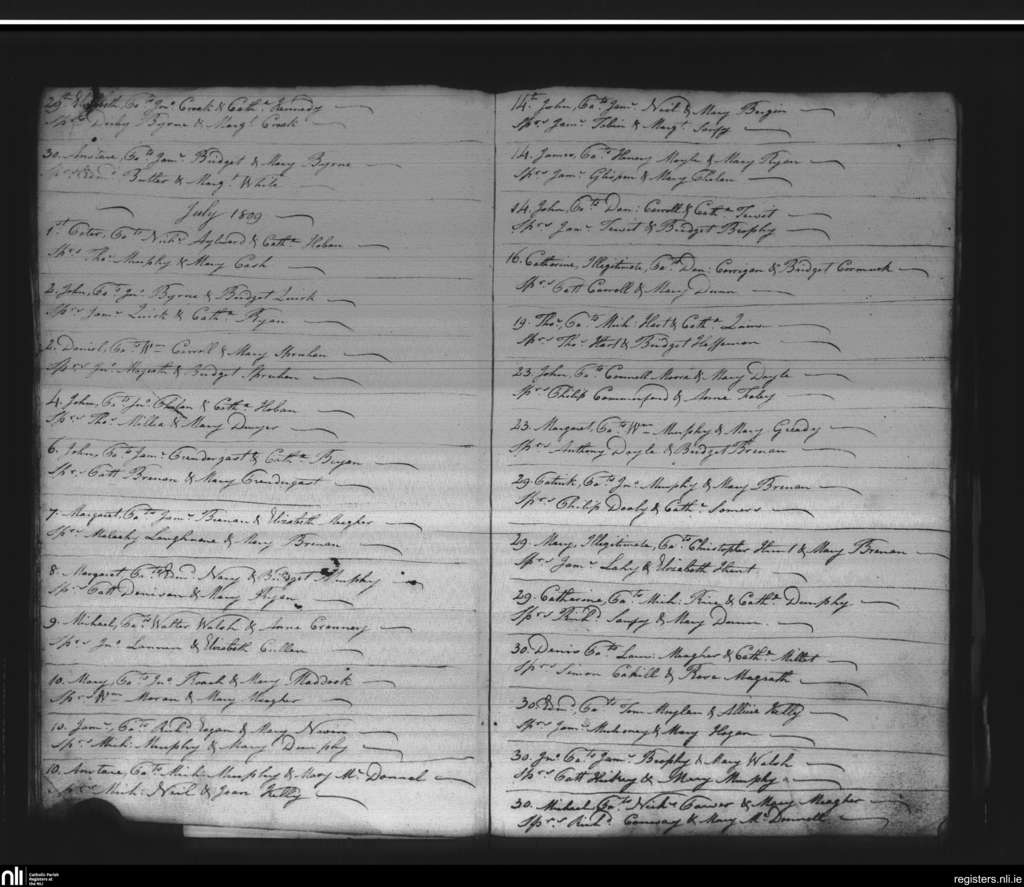 29th Elizabeth, Bap. to Jno. Crook & Cath.e Kennedy
Sprs Derby Byrne & Margt. Crook
30. Anstace, Bap. to Jams. Bridget & Mary Byrne
Butler & Margt. White
July 1809
1st Peter, Bap. to Nichs. Aylward & Cathe. Hoban
Sprs Thos. Murphy & Mary Cash
2. John, Bap. to Jno. Byrne & Bridget Quirk
Sprs Jams. Quirk & Cathe. Ryan
2. Daniel, Bap. to Wm. Carroll & Mary Spruhan
Sprs Jno. Magrath & Bridget Spruhan
4. John, Bap. to Jno. Phelan & Cathe. Hoban
Sprs Thos. Millea & Mary Dwyer
6. John, Bap. to Jams. Prendergast & Cathe. Bryan
Sprs Patt Brenan & Mary Prendergast
7. Margaret, Bap. to Jams. Brenan & Elizabeth Meagher
Sprs Malachy Loughnane & Mary Brenan
8. Margaret, Bap. to Edmd. Neary & Bridget Dunphy
Sprs Patt Denison & Mary Ryan
9. Michael, Bap. to Walter Walsh & Anne Crannery
Sprs Jno. Lannan & Elizabeth Cullen
10. Mary, Bap. to Jno. Roach & Mary Maddock
Sprs Wm. Moran & Mary Meagher
10. Jams., Bap. to Richd. Logan & Mary Nevin
Sprs Mich: Murphy & Mary Dunphy
10. Anstace, Bap. to Mich: Murphy & Mary McDonnel
Sprs Mich: Neil & Jean Kelly
14th. John, Bap. to Jams. Neil & Mary Bergin
Sprs Jams. Tobin & Margt. Saupy
14. James, Bap. to Henery Moyle & Mary Ryan
Sprs Jams. Glispen & Mary Phelan
14. John, Bap. to Dan: Carroll & Cathe. Tewit
Sprs Jams. Tewit & Bridget Brophy
16. Catharine, Illegitimate, Bap. to Dan: Corrigan & Bridget Cormuck
Sprs Patt Carroll & Mary Dunn
19. Thos., Bap. to Mich: Hart & Cathe.
Sprs Thos. Hart & Bridget Heffernan
23. John, Bap. to Connell Morris & Mary Doyle
Sprs Philip Commerford & Anne Foley
23. Margaret, Bap. to Wm. Murphy & Mary Grady
Sprs Anthony Doyle & Bridget Brenan
29. Patrick, Bap. to Jno. Murphy & Mary Brenan
Sprs Philip Dooly & Cathe. Somers
29. Mary, Illegitimate, Bap. to Christopher Hunt & Mary Brenan
Sprs Jams. Lahy & Elizabeth Hunt
29. Catharine, Bap. to Mich: Rice & Cathe. Dunphy
Sprs Richd. Saupy & Mary Dunn
30. Denis Bap. to Laur: Meagher & Cathe. Millet
Sprs Simon Cahill & Rose Magrath
30. Edmd. Bap. to Tom Moylan & Allice Kelly
Sprs Jams. Mulrony & Mary Hogan
30. Jno. Bap. to Jams. Brophy & Mary Walsh
Sprs Patt Hickey & Mary Murphy
30. Michael Bap. to Nichs. Power & Mary Meagher
Sprs Richd. Conway & Mary McDonnell
nli
Catholic Parish
Registers at
the NLI
registers.nli.ie